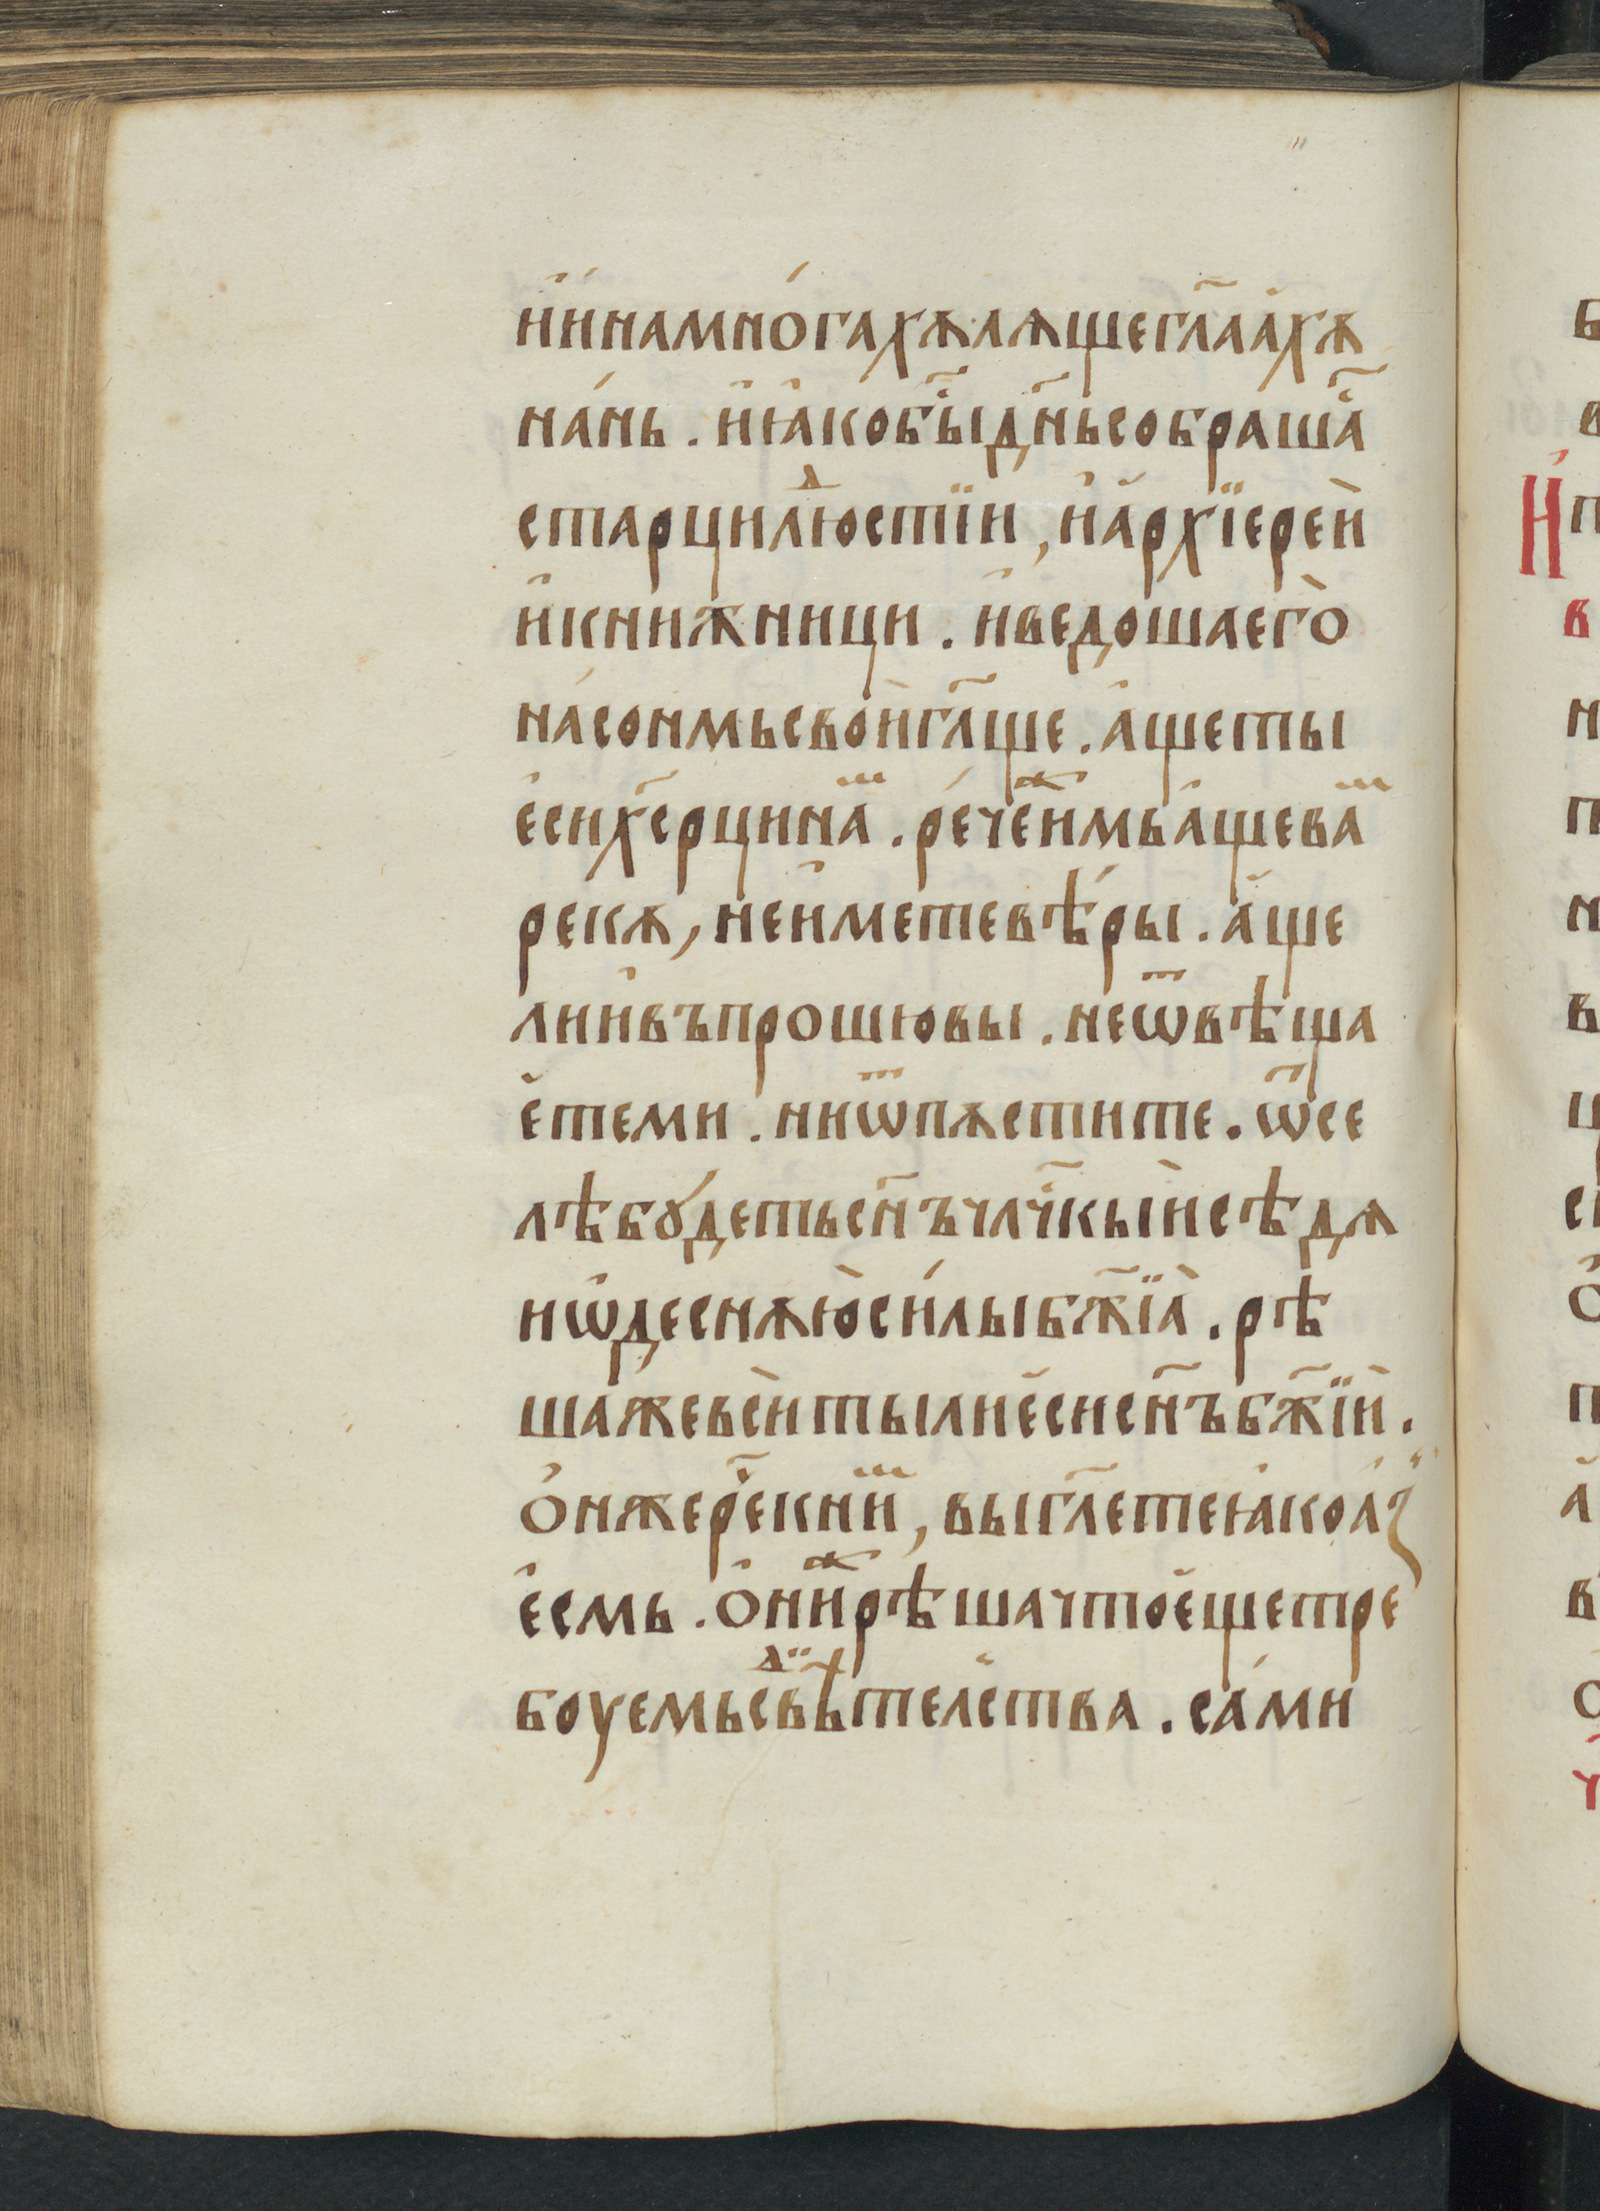 и҆и҆намно́гахѫлѧщегл҃аа҆хѫ
на́нь . и҆ꙗ҆кобы҃дн҃ьсобрашѧ҃
старцилюⷣстїи , и҆а҆рхїерей
и҆книжници . и҆ведошаего̀
на́сонмьсвой гл҃ще . а҆щеты
е҆сих҃срцинаⷨ . ре́чеⷤи҆мьа҆щеваⷨ
рекѫ, неи҆метевѣ́ры . а҆ще
лии҆въпрошювы . неѿвѣща
е҆теми . ниѿпѫстите . ѿсе
лѣбꙋ́детьсн҃ъчл҃чкыйсѣдѧ
иѡ҆деснѫю̀си́лыбж҃їѧ . рѣ
шажевсѝтылие҆сисн҃ъбж҃їй .
о҆нжере҃киⷨи , выгл҃етеꙗ҆коа҆ꙁ
е҆смь . о҆ниⷤрѣшачтое҆щетре
боуемьсвⷣѣтелства . са́ми
Б
в
И п
в
н
п
н
в
щ
с
о
п
а
в
о
ч